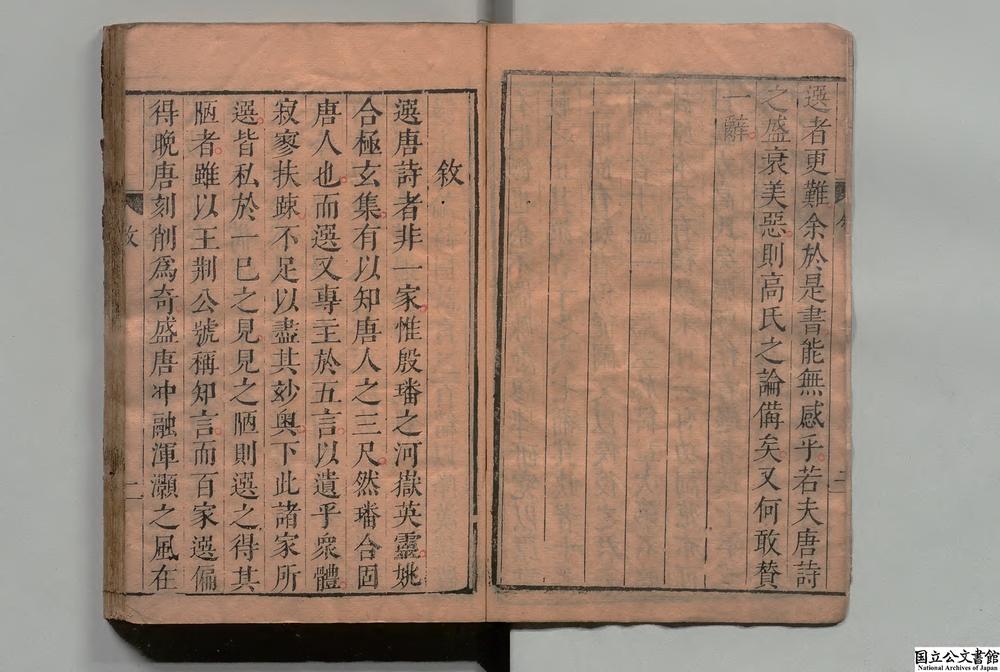 選者更難余於是書能無感乎若夫唐詩
之盛衰美惡則高氏之論備矣又何敢贊
一辭
敘
選唐詩者非一家惟殷璠之河嶽英靈姚
合極玄集有以知唐人之三尺然璠合固
唐人也而選又專主於五言以遺乎衆體
寂寥扶踈不足以盡其妙奥下此諸家所
選皆私於一巳之見見之陋則選之得其
陋者雖以王荆公號稱知言而百家選偏
得晚唐刻削爲奇盛唐冲融渾灝之風在
敘
二
国立公文書館
National Archives of Japan